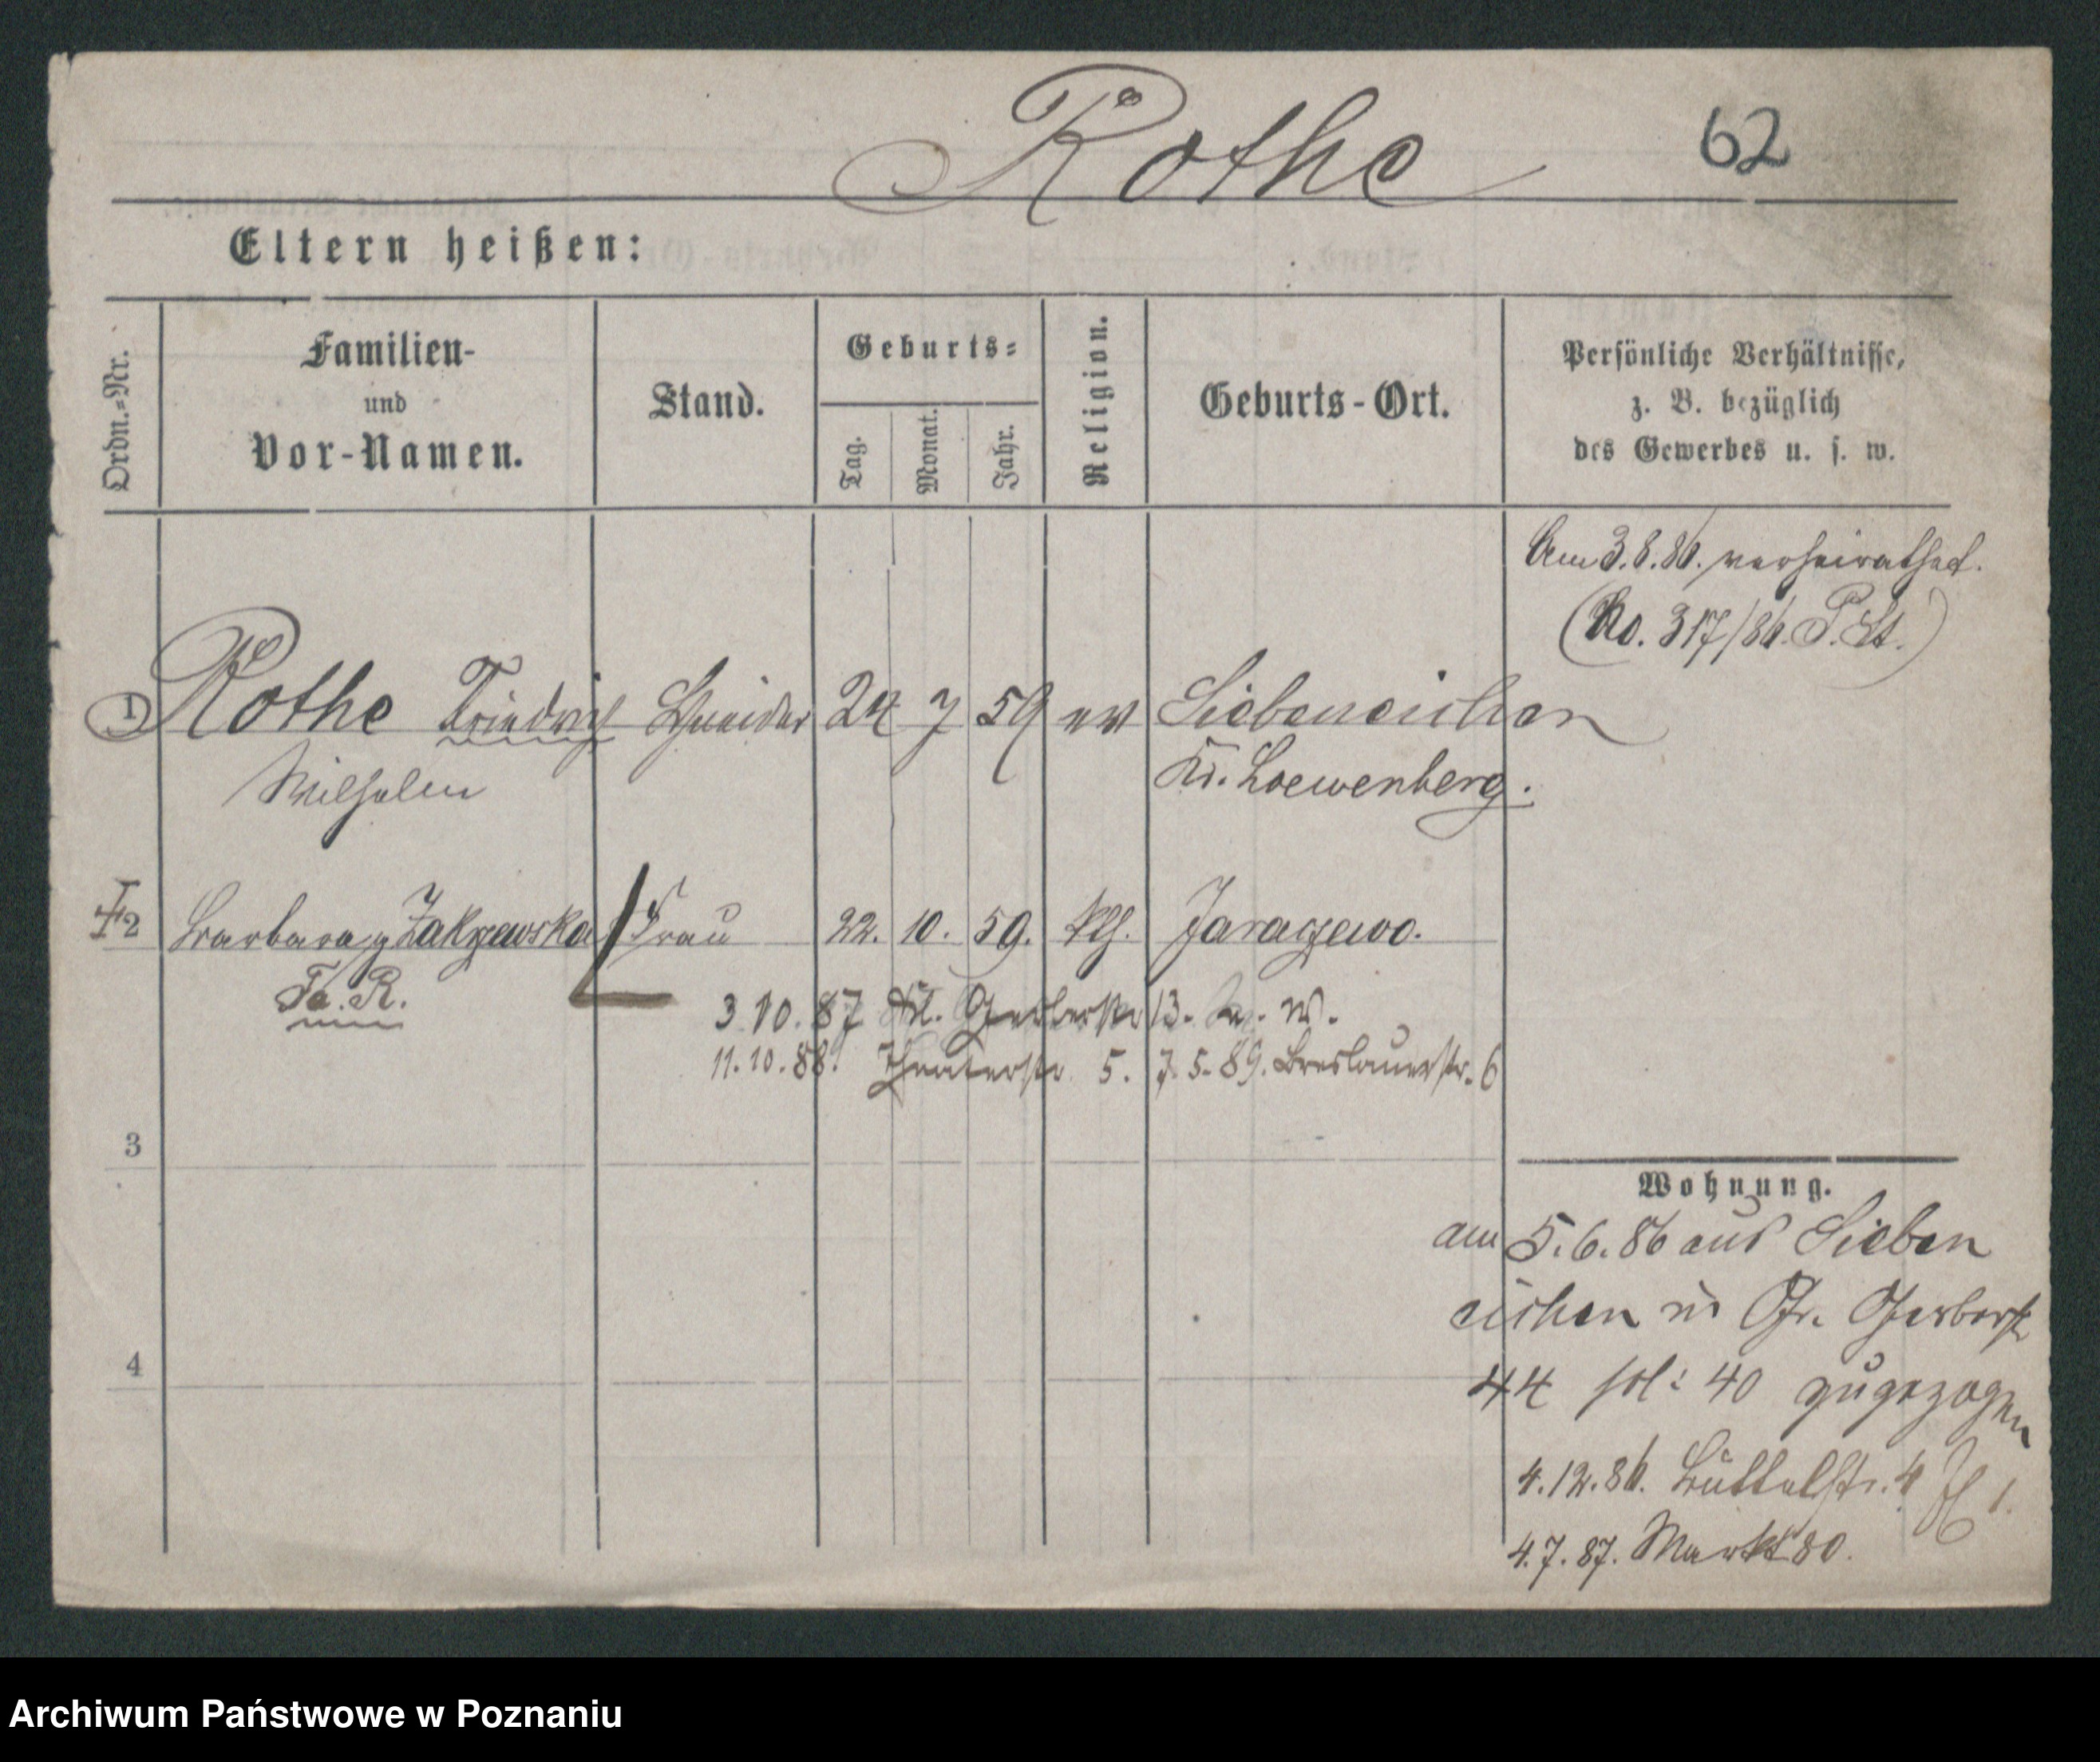 Rothe 62
Eltern heißen:
Ordn.-Nr.
Familien-
und
Vor-Namen.
Stand.
Geburts-
Tag.
Monat.
Jahr.
Religion.
Geburts-Ort.
Persönliche Verhältnisse,
z. B. bezüglich
des Gewerbes u. s. w.
Am 3.8.86. verheirathet.
(No. 317/86. P. St.)
1 Rothe Friedrich Schneider 24 7 59 ev Siebeneichen
Wilhelm Kr. Loewenberg.
2 Barbara g Zakrzewska Frau 22. 10. 59. kth. Jaraczewo.
Fa. R.
3 10. 87 Kl. Gerberstr 13. W.
11. 10. 88. Theaterstr. 5. 7. 5. 89. Breslauerstr. 6
3
Wohnung.
am 5. 6. 86 aus Sieben
eichen in Gr. Gerberstr
4
44 40 zugezogen
4. 12. 86. Büttelstr. 4 1.
4. 7. 87. Markt 80.
Archiwum Państwowe w Poznaniu